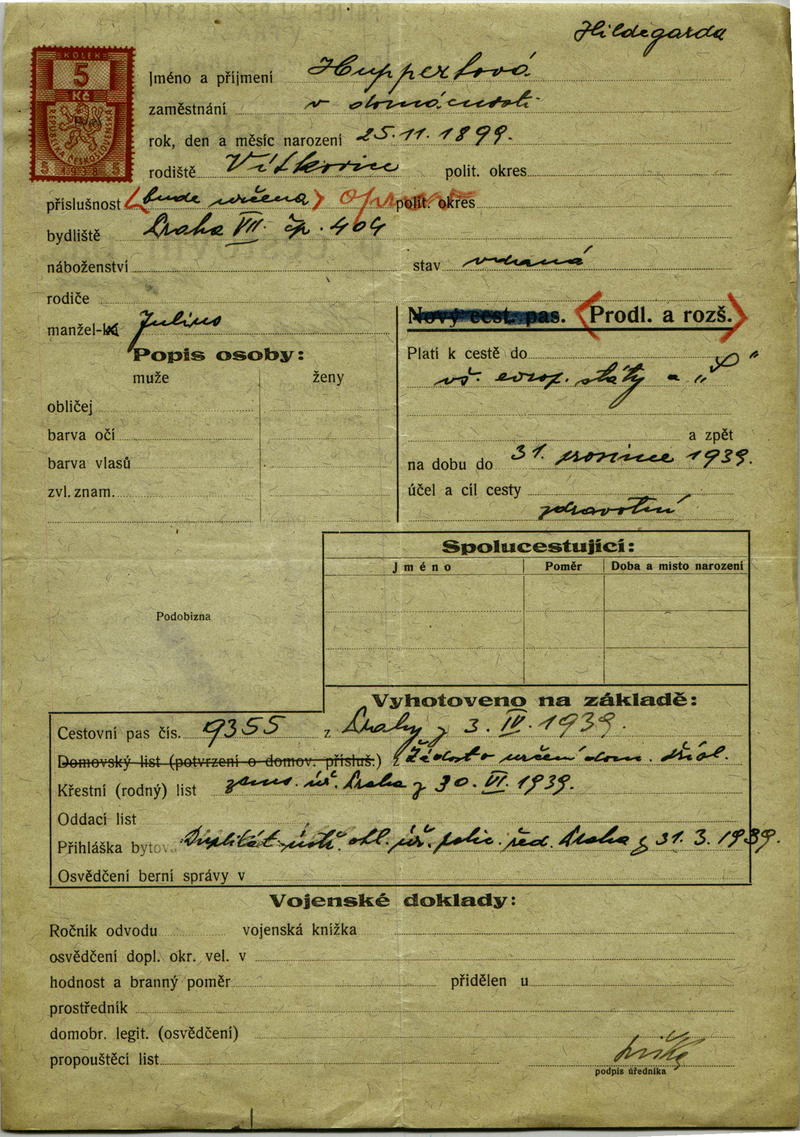 Hildegarda
KOLEK
5
Kč
REPUBLIKA ČESKOSLOVENSKÁ
5 1938 5
Jméno a příjmení Huppertová
zaměstnání v domácnosti
rok, den a měsíc narození 25. 11. 1899.
rodiště Vítkovice polit. okres
příslušnost (bude určena) oprava polit. okres
bydliště Praha VII. čp. 404
náboženství stav vdaná
rodiče
manžel-ka Julius
Nový cest. pas. (Prodl. a rozš.)
Popis osoby:
muže ženy
obličej
barva očí
barva vlasů
zvl. znam.
Platí k cestě do
vš. evrop. státy a „
a zpět
na dobu do 31. prosince 1939.
účel a cíl cesty
zdravotní
Spolucestující:
Jméno Poměr Doba a místo narození
Podobizna
Vyhotoveno na základě:
Cestovní pas čís. 9355 z Prahy z 3. IV. 1939.
Domovský list (potvrzení o domov. přísluš.) Žádost o určení dom. přísl.
Křestní (rodný) list zems. úř. Praha z 30. VI. 1939.
Oddací list
Přihláška bytov. Duplikát ústř. ohl. úř. polic. řed. Praha z 31. 3. 1939.
Osvědčení berní správy v
Vojenské doklady:
Ročník odvodu vojenská knížka
osvědčení dopl. okr. vel. v
hodnost a branný poměr přidělen u
prostředník
domobr. legit. (osvědčení)
propouštěcí list
podpis úředníka